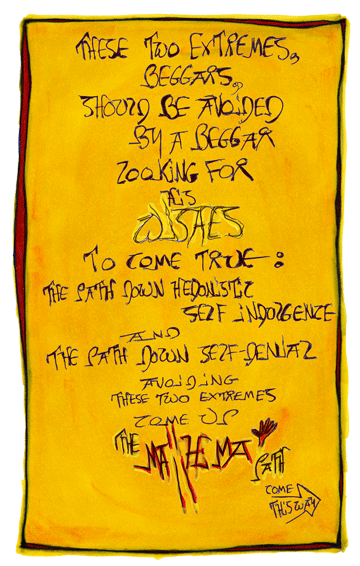 THESE TWO EXTREMES,
BEGGARS,
SHOULD BE AVOIDED
BY A BEGGAR
LOOKING FOR
HIS
WISHES
TO COME TRUE:
THE PATH DOWN HEDONISTIC
SELF INDULGENCE
AND
THE PATH DOWN SELF-DENIAL
AVOIDING
THESE TWO EXTREMES
COME UP
THE
PATH
COME
THIS WAY